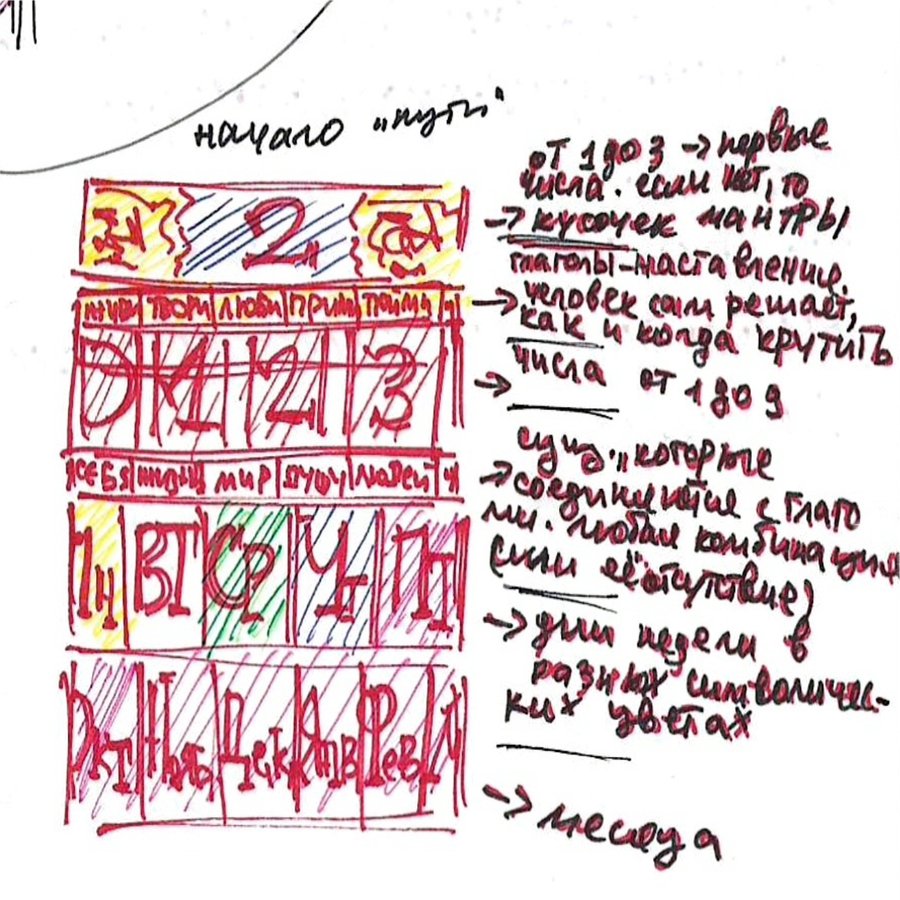 начало "пути"
от 1 до 3 → первые
числа. если нет, то
→ кусочек мантры
2
глаголы-наставления.
→ человек сам решает,
как и когда крутить
твори люби
→ числа от 1 до 9
1 2 3
сущ., которые
→ соединяются с глаго
ми. любая комбинация
(или её отсутствие)
себя жизнь мир душу людей
→ дни недели в
разных символичес-
ких цветах
Пн ВТ Ср Чт ПТ
→ месяца
Окт Нояб Дек Янв Фев М